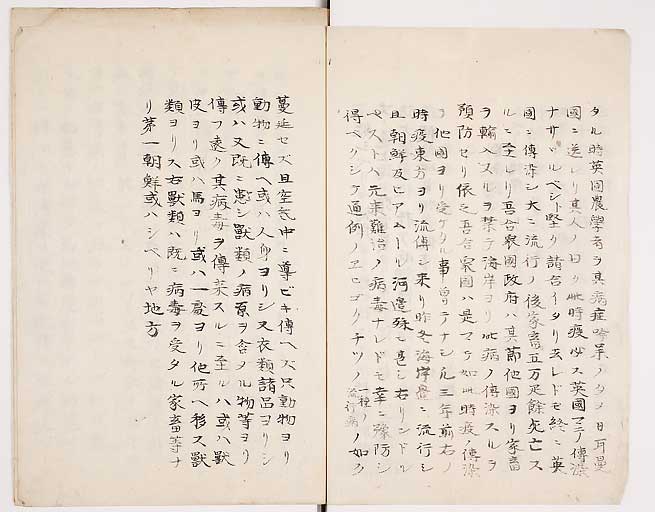 タル時英国農学者ヲ其病症吟味ノタメ日耳曼
国ニ送レリ其人ノ曰ク此時疫必ス英国マテノ傳染
ナサヽルベシト堅ク請合イタリ然レドモ終ニ英
国ニ傳染シ大ニ流行ノ後家畜五万疋餘死亡ス
ルニ至レリ吾合衆國政府ハ其節他國ヨリ家畜
ヲ輸入スルヲ禁テ海岸ヨリ此病ノ傳染スルヲ
預防セリ依之吾合衆国ハ是マテ如此時疫ノ傳染
ヲ他國ヨリ受ケタル事曽テナシ凡三年前右ノ
時疫東方ヨリ流傳シ来リ昨冬海岸邊ニ流行シ
且朝鮮及ヒアムール河邊殊ニ甚シ右リンドル
ペストハ元来難治ノ病毒ナレドモ幸ニ豫防シ
得ベクシテ通例ノエピゴクチツノ一種ノ流行病ノ如ク
蔓延セズ且空気中ニ導ビキ傳ヘズ只動物ヨリ
動物ニ傳ヘ或ハ人身ヨリシ又衣類諸品ヨリシ
或ハ又既ニ患シ獸類ノ病原ヲ含タル物等ヨリ
傳フ遠ク其病毒ヲ傳染スルニ至ルハ或ハ獸
皮ヨリ或ハ馬ヨリ或ハ一處ヨリ他所ヘ移ス獸
類ヨリス右獸類ハ既ニ病毒ヲ受タル家畜等ナ
リ第一朝鮮或ハシベリヤ地方